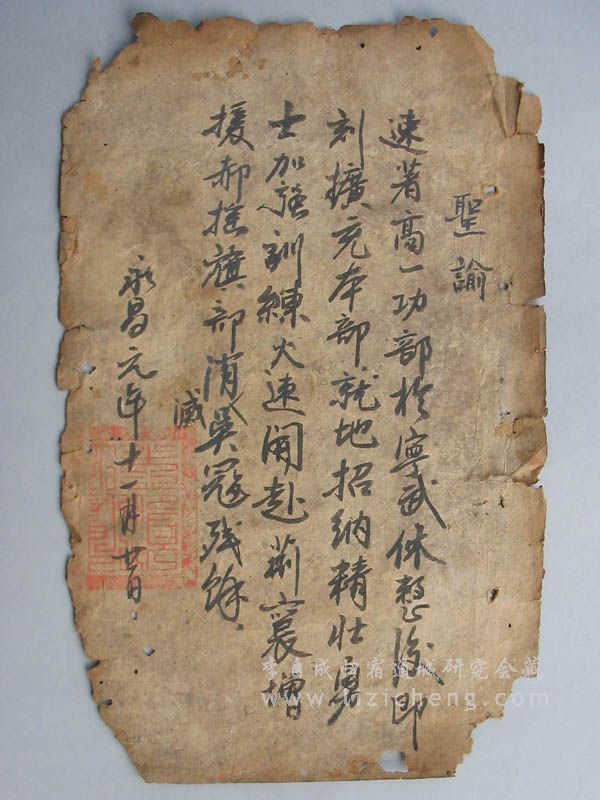 聖諭
速著高一功部於寧武休整後即
刻擴充本部就地招納精壯勇
士加強訓練火速開赴荊襄增
援郝搖旗部消滅吳寇殘餘
永昌元年十一月廿日
李自成归宿通城研究会藏
www.lizicheng.com